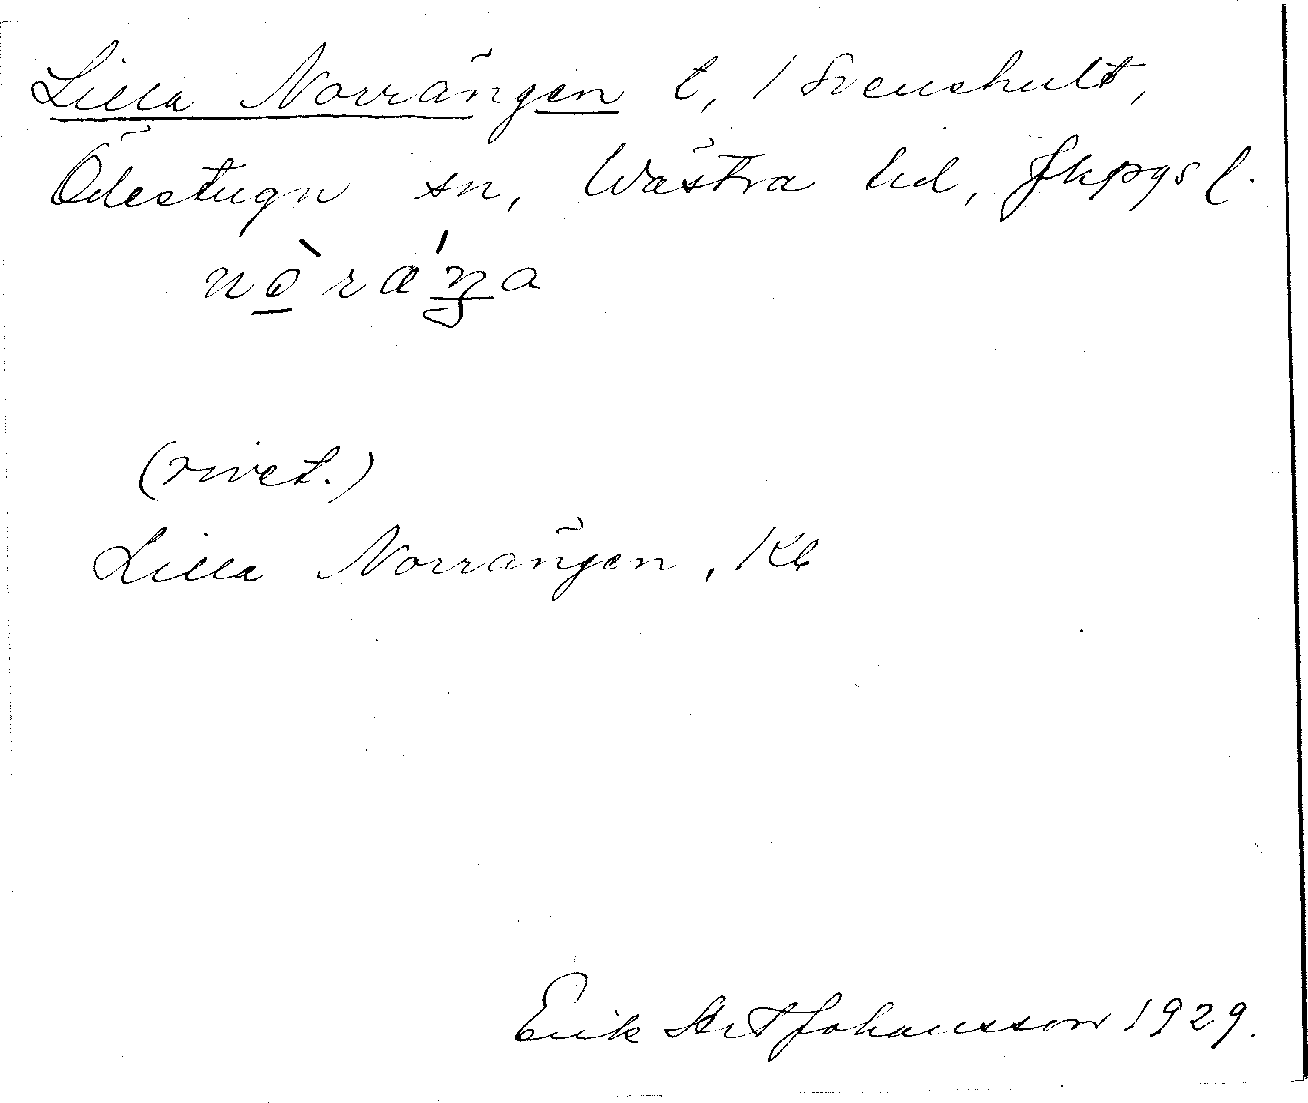 Lilla Norrängen t, 1 Svenshult,
Ödestugu sn, Västra hd, Jkpgs l.
nòrǽŋa
(rivet.)
Lilla Norrängen, Kb
Erik Art Johansson 1929.